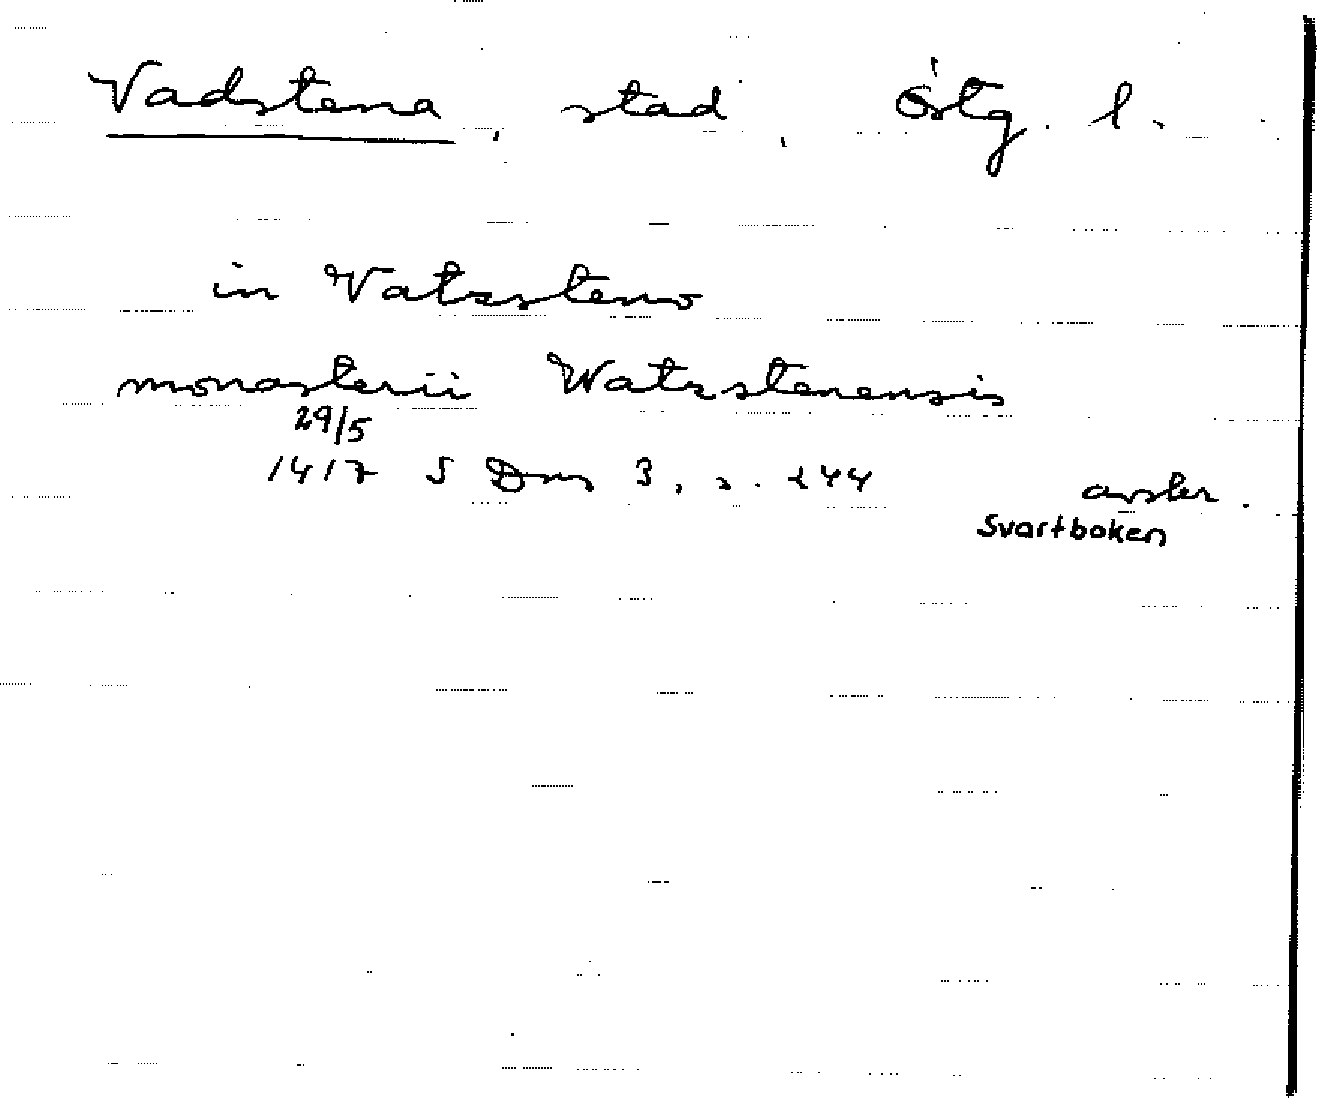 Vadstena, stad, Östg. l.
in Vatzsteno
monasterii Watzstenensis
29/5
1417 S Dns 3, s. 244 avskr.
Svartboken